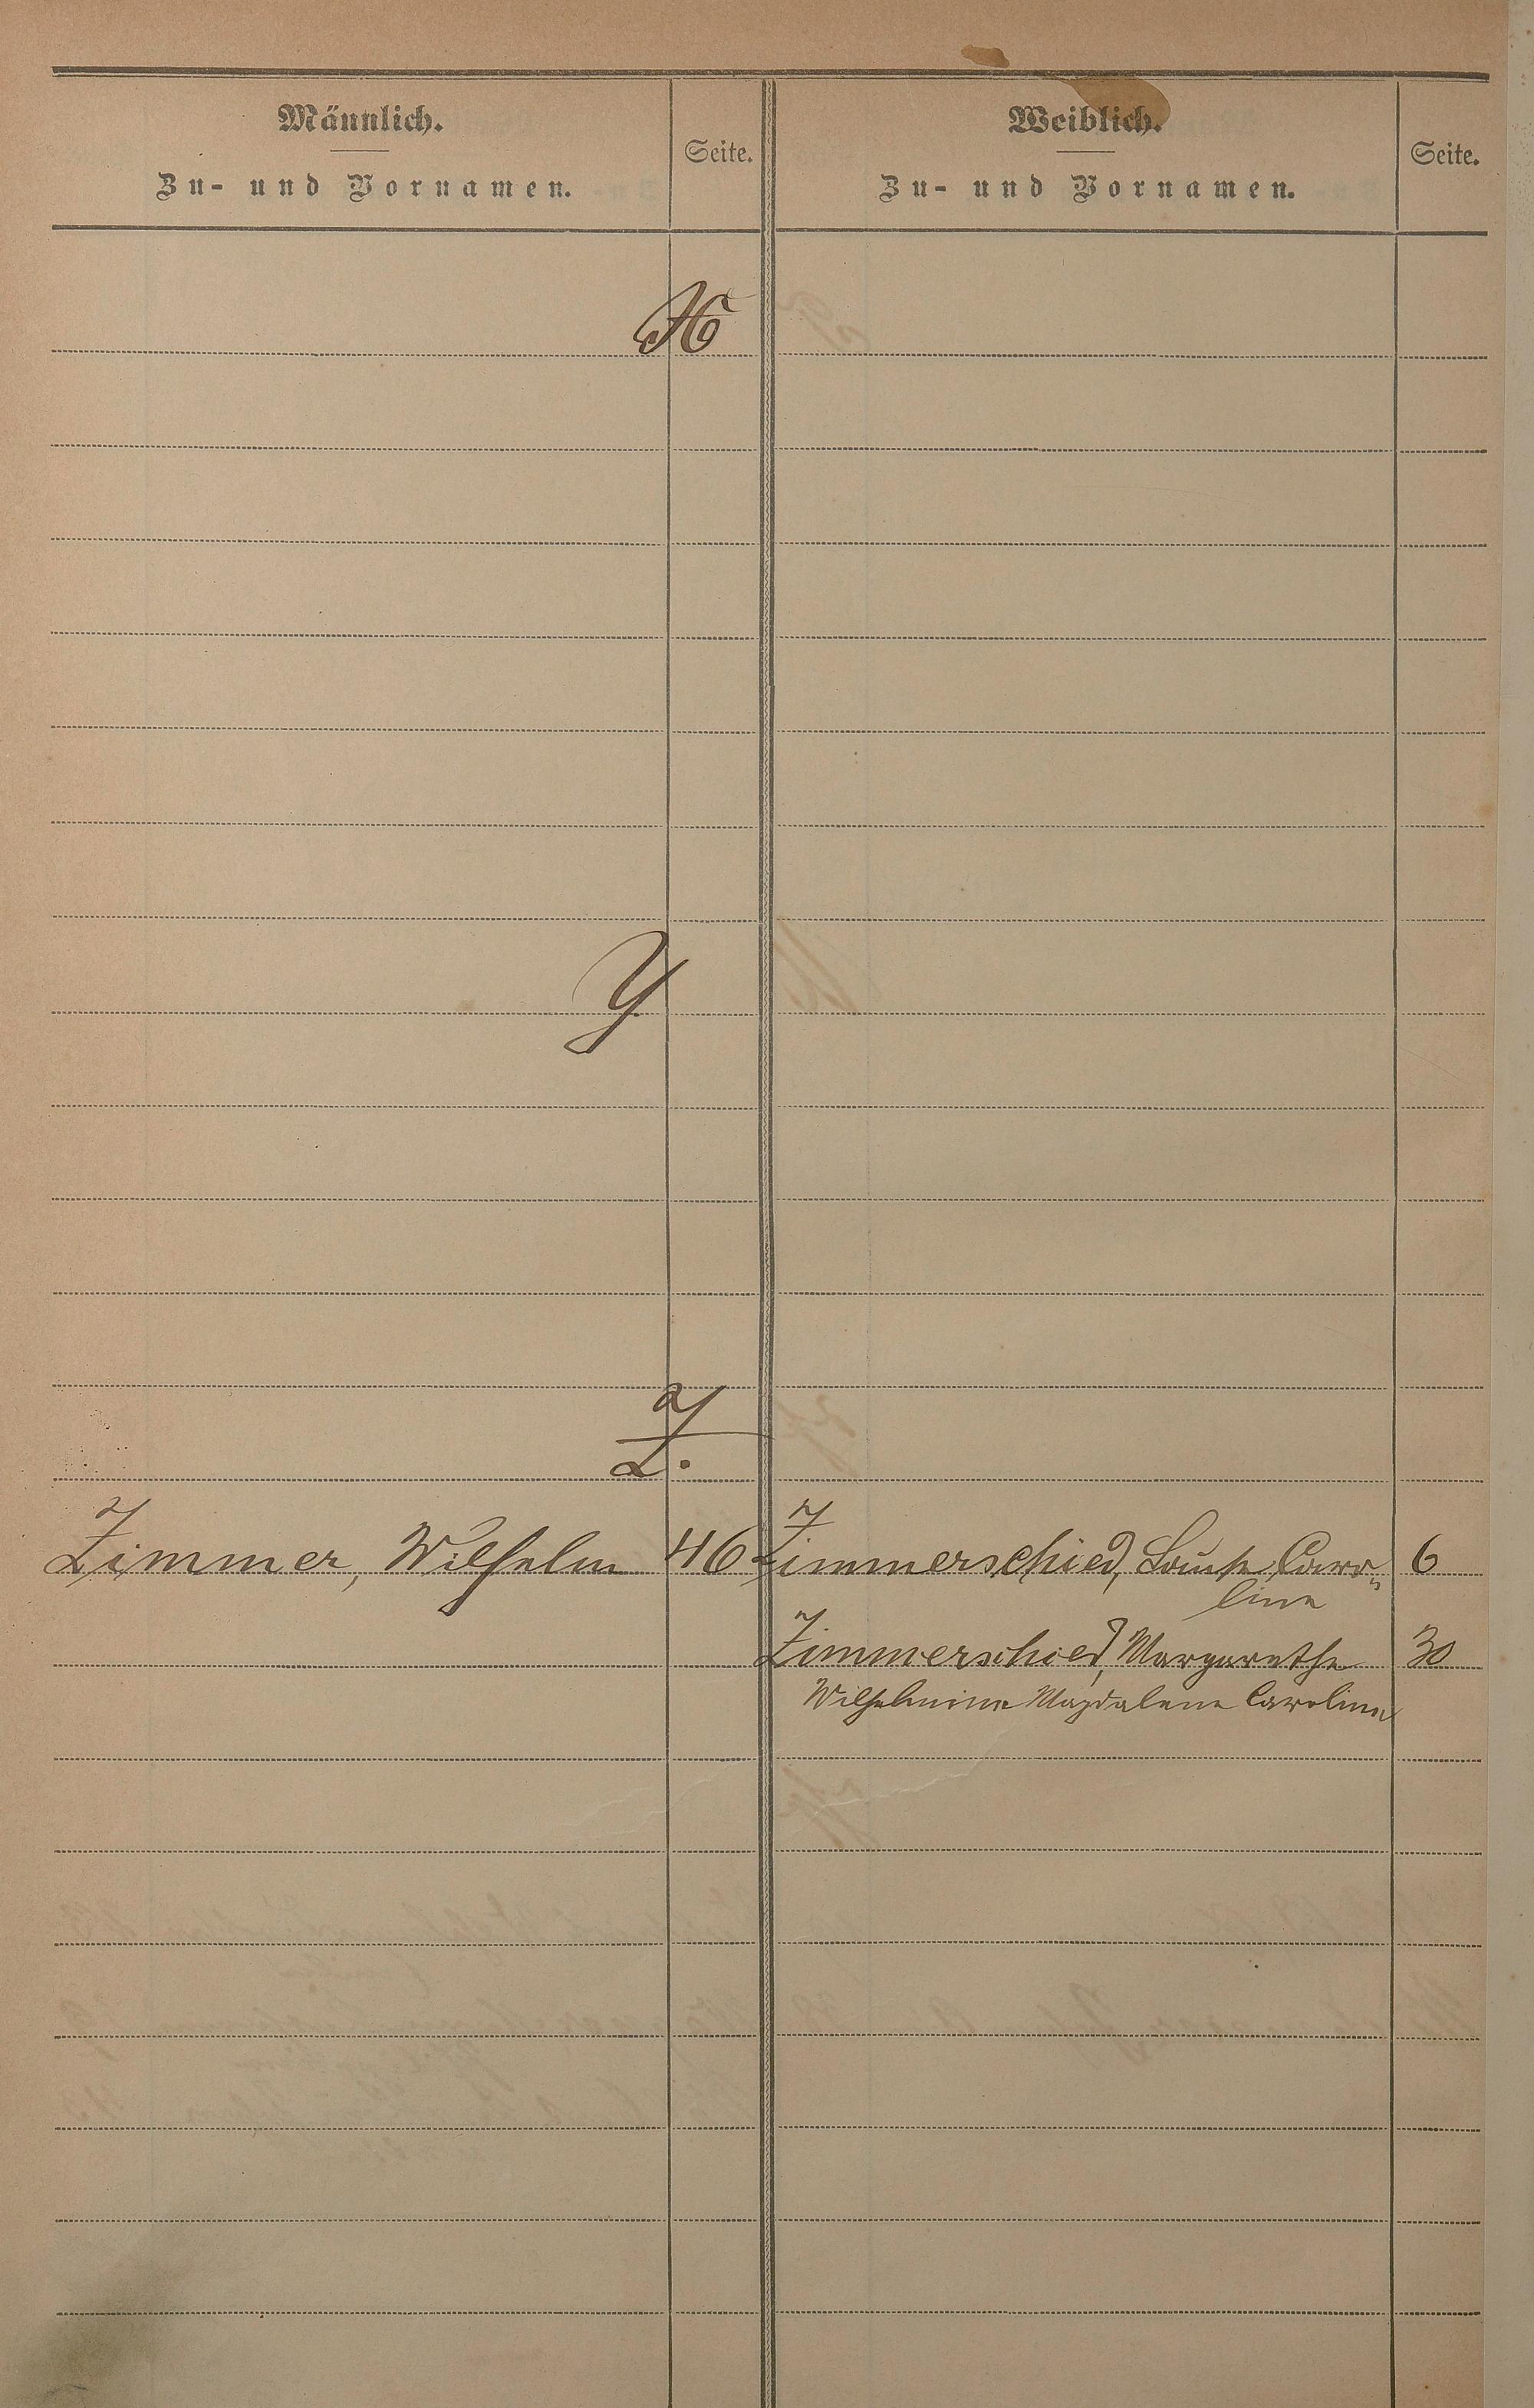 Männlich.
Zu- und Vornamen.
Seite.
Weiblich.
Zu- und Vornamen.
Seite.
X
Y
Z.
Zimmer, Wilhelm 46
Zimmerschied, Louise Caro„ 6
line
Zimmerschied, Margarethe 30
Wilhelmine Magdalene Caroline